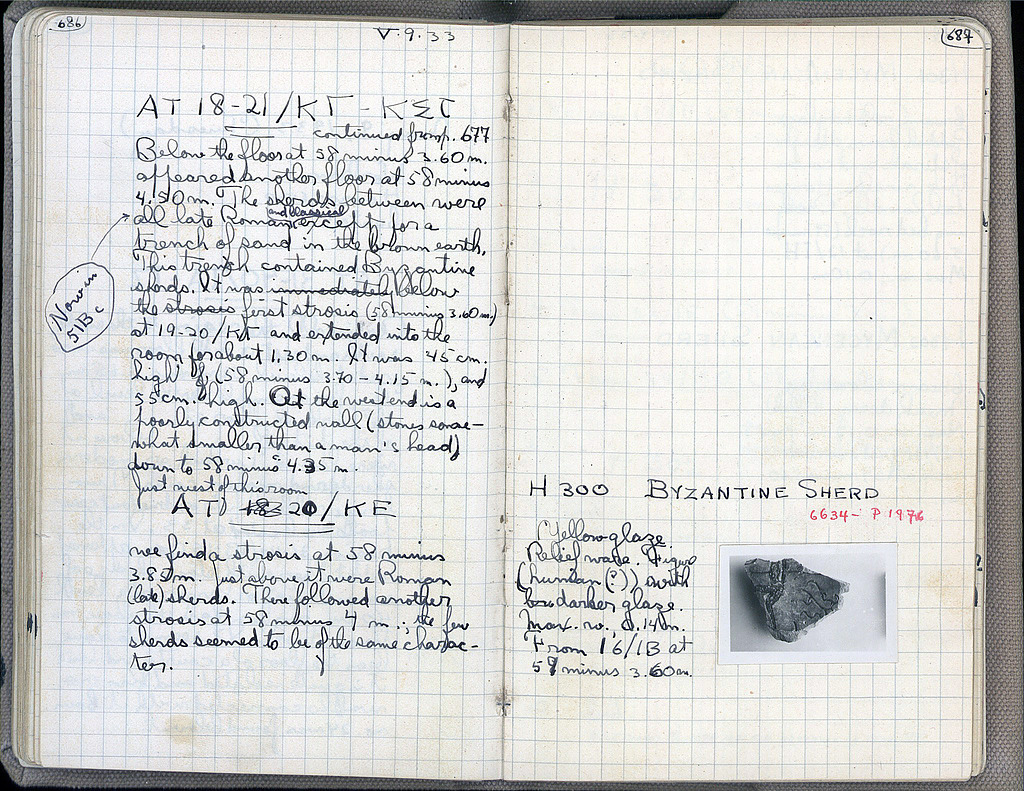 686
V.9.33
AT 18-21/ΚΓ - ΚΣΤ
continued from p. 677
Below the floor at 58 minus 3.60 m.
appeared another floor at 58 minus
4.50 m. The sherds between were
and classical
all late Roman, except for a
trench of sand in the brown earth.
This trench contained Byzantine
sherds. It was immediately below
the strosis first strosis (58 minus 3.60 m.)
at 19-20/ΚΓ and extended into the
room for about 1.30 m. It was 45 cm.
high (58 minus 3.70 - 4.15 m.), and
55 cm. high. At the west end is a
poorly constructed wall (stones some-
what smaller than a man's head)
down to 58 minus 4.35 m.
Now in
51B c
Just west of this room
AT 20/ΚΕ
we find a strosis at 58 minus
3.85 m. Just above it were Roman
(late) sherds. There followed another
strosis at 58 minus 4 m.; the few
sherds seemed to be of the same charac-
ter.
687
H 300 BYZANTINE SHERD
6634 - P 1976
Yellow glaze.
Relief ware. Figure
(human (?)) with
darker glaze.
Max. 0.14 m.
From 16/ΙΒ at
57 minus 3.60 m.